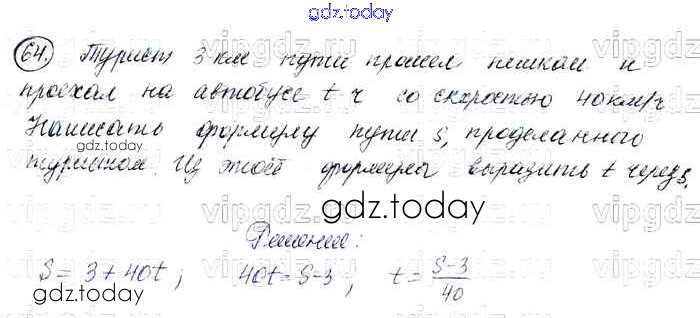 gdz.today
64. Турист 3 км пути прошел пешком и
проехал на автобусе t ч со скоростью 40 км/ч
Написать формулу пути S, проделанного
туристом. Из этой формулы выразить t через S.
gdz.today
Решение:
S = 3 + 40t ; 40t = S-3 , t = \frac{S-3}{40}
gdz.today